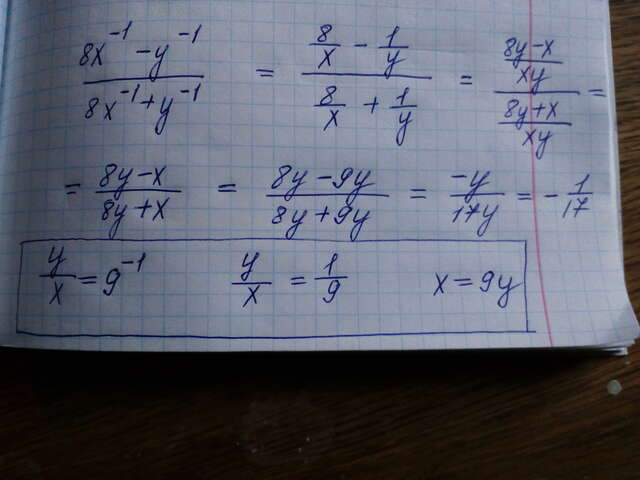 (8x⁻¹ - y⁻¹)/(8x⁻¹ + y⁻¹) = (8/x - 1/y)/(8/x + 1/y) = ((8y-x)/(xy))/((8y+x)/(xy)) =
= (8y-x)/(8y+x) = (8y-9y)/(8y+9y) = (-y)/(17y) = -1/17
y/x = 9⁻¹ y/x = 1/9 x = 9y